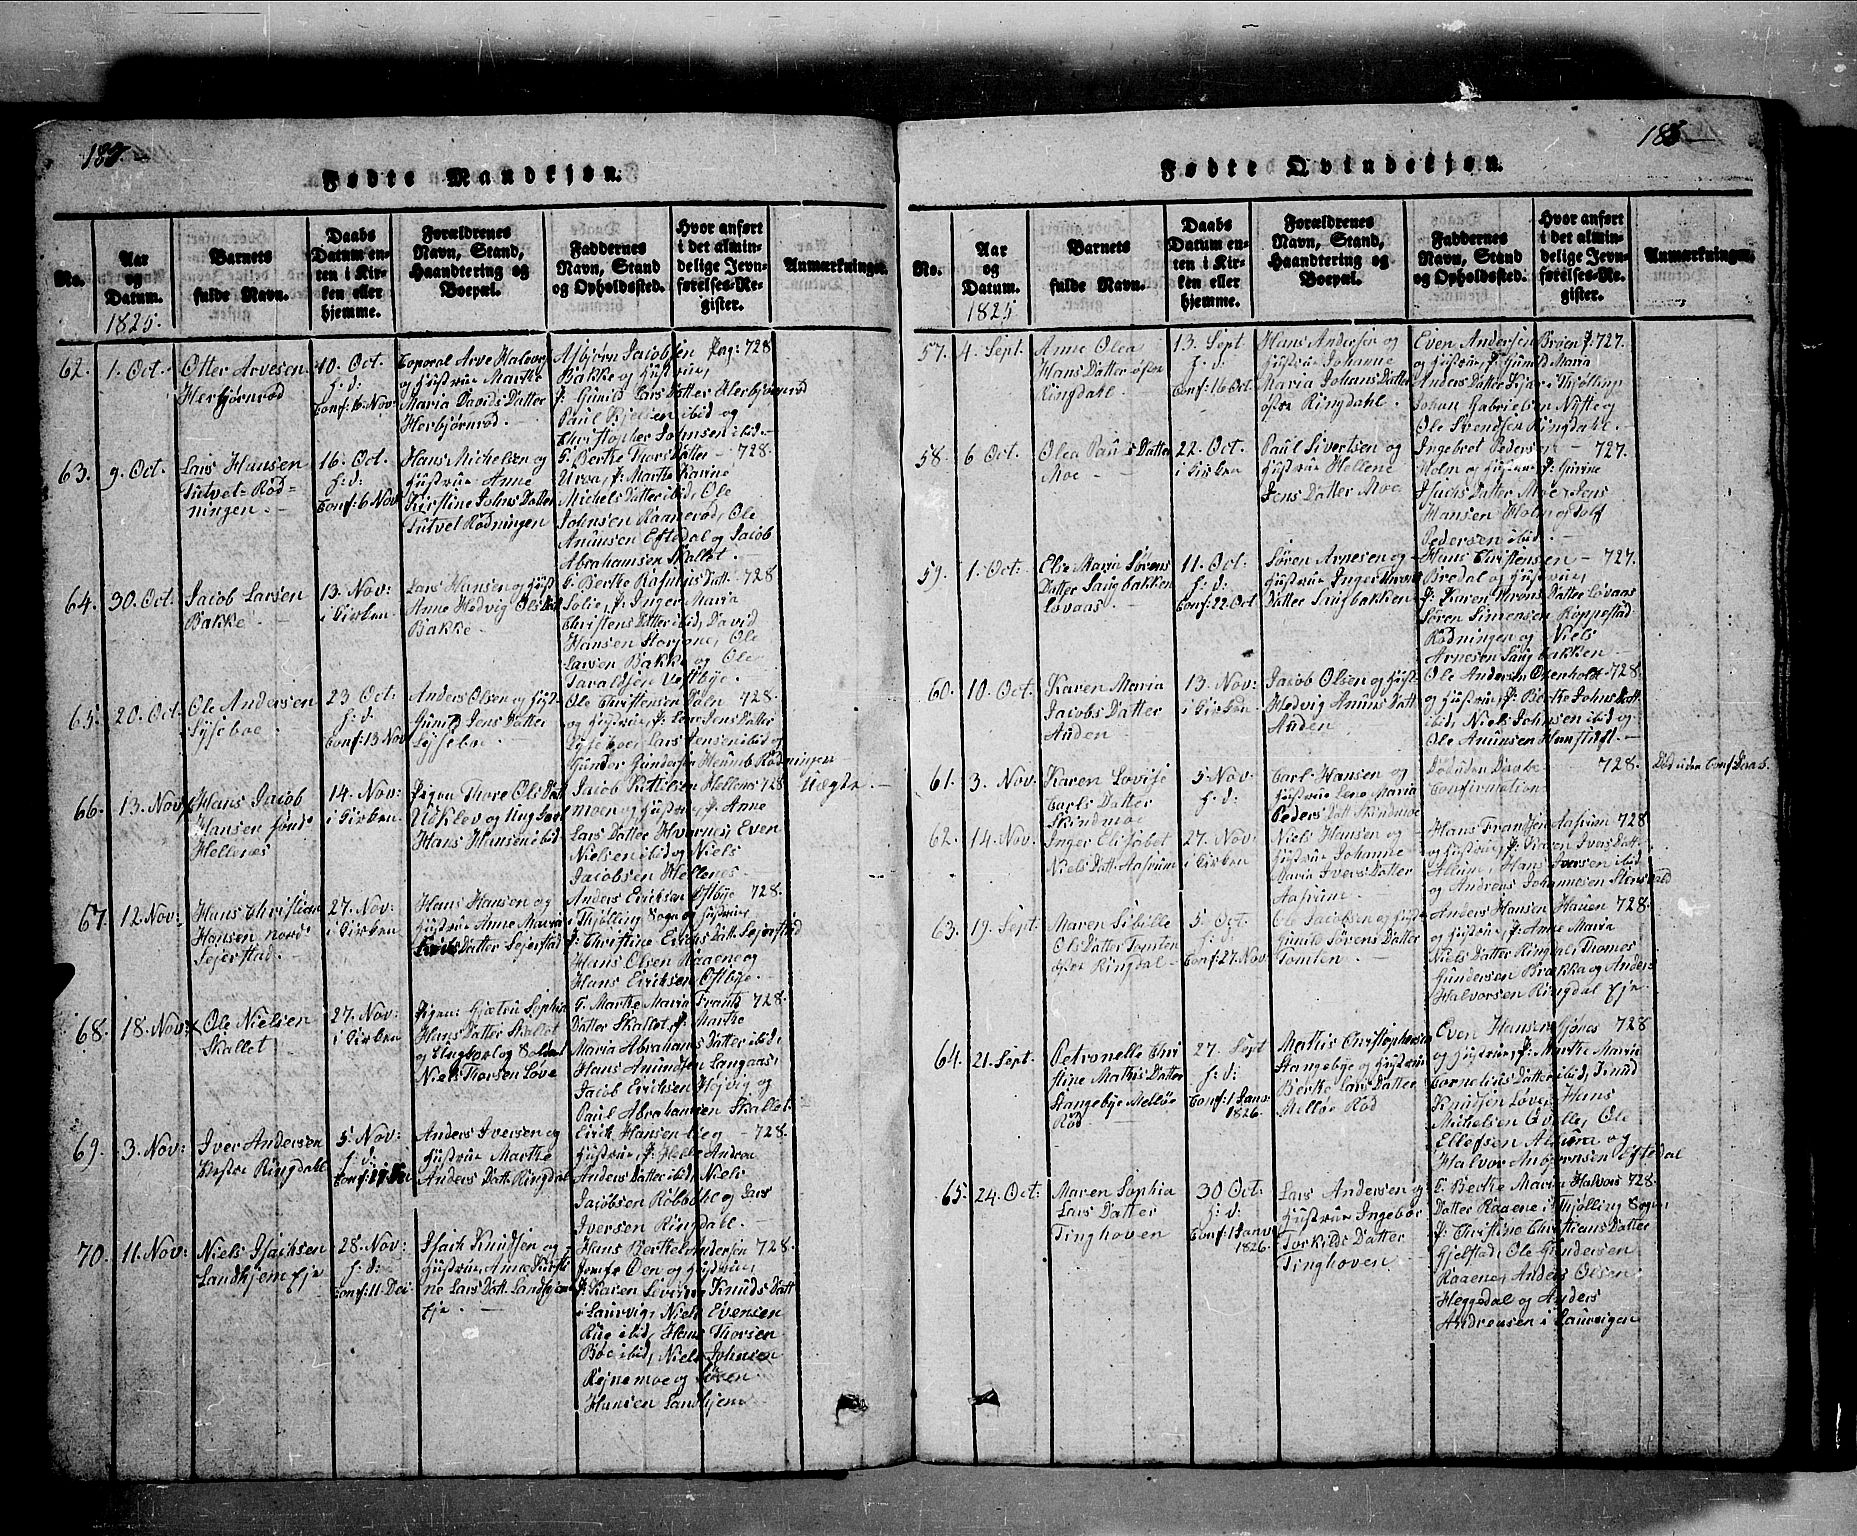 187.
Fødte Mandkjøn.
No.
Aar
og
Datum.
1825.
Barnets
fulde Navn.
Daabs
Datum en-
ten i Kir-
ken eller
hjemme.
Forældrenes
Navn, Stand,
Haandtering og
Boepæl.
Faddernes
Navn, Stand
og Opholdssted.
Hvor anført
i det almin-
delige Jevn-
førelses-Re-
gister.
Anmærkninger.
62.
1. Oct.
Otter Arvesen
Herbjørnrød
10. Oct.
h: d:
Conf: 6 Nov:
Coporal Arve Halvors
og Hustrue Marthe
Maria Davids Datter
Herbjørnrød.
Asbjørn Jacobsen
Bakke og Hustrue,
P: Gunild Lars Datter Herbjørnrød
Paul Bjelsen ibid og
Christopher Johnsen ibid.
Pag: 728
63.
9. Oct.
Lars Hansen
Tutvet-Rød-
ningen.
16. Oct.
h: d:
Conf: 6 Nov:
Hans Michelsen og
Hustrue Anne
Kirstine Johns Datter
Tutvet Rødningen
G. Berthe Thors Datter
Urva, P: Marthe Karine
Michels Datter ibid, Ole
Johnsen Raanerød, Ole
Amunsen Eftedal og Jacob
Abrahamsen Skallet.
728.
64.
30. Oct.
Jacob Larsen
Bakke
13. Nov:
i Kirken
Lars Hansen og Hust:
Anne Hedvig Ols Datt
Bakke.
G. Berthe Rasmus Datt
Solie, P: Inger Maria
Christens Datter ibid, David
Hansen Storjone, Ole
Larsen Bakke og Ole
Taraldsen Vestbye.
728
65.
20. Oct.
Ole Andersen
Lyseboe.
23 Oct:
h: d:
Conf: 13 Nov
Anders Olsen og Hust-
Gunild Jens Datter
Lyseboe.
Ole Christensen
og Hustrue, P: Jens Datter
Lyseboe, Lars Jensen ibid og
Gunder Gundersen Heumb Rødningen
728.
66.
13. Nov:
Hans Jacob
Hansen sønd:
Hellenæs
14. Nov:
i Kirken
Pigen Thore Ols Datt
Udklev og Ungkarl
Hans Hansen ibid
Jacob Kittilsen Hellens
moen og Hustrue, P: Anne
Lars Datter Hvarnes, Even
Nielsen ibid og Niels
Jacobsen Hellenes
728
Uægte.
67.
12. Nov:
Hans Christian
Hansen nord:
Sejerstad.
27. Nov:
i Kirken
Hans Hansen og
Hustrue Anne Maria
Eriks Datter Sejerstad
Anders Erichsen Østbye
Thjølling Sogn og Hustrue,
P: Christine Erichs Datt: Sejerstad
Hans Olsen Raaene og
Hans Eiriksen Østbye.
728.
68.
18. Nov:
Ole Nielsen
Skallet
27. Nov:
i Kirken
Pigen: Gjætru Sophia
Hans Datter Skallet
og Ungkarl og Soldat
Niels Thorsen Love
G. Marthe Maria Frants
Datter Skallet, P. Marthe
Maria Abrahams Datter ibid
Hans Amundsen Langaas,
Jacob Erichsen Højvig og
Paul Abrahamsen Skallet.
728.
69.
3. Nov:
Iver Andersen
Vestre Ringdahl
5 Nov:
h: d:
Anders Iversen og
Hustrue Marthe
Anders Datt: Ringdal
Eirik Hansen Lie og
Hustrue, P: Helle Andrea
Anders Datter ibid, Niels
Jacobsen Røbbdal og Lars
Iversen Ringdahl.
728.
70.
11. Nov:
Niels Isachsen
Landhjem Eje
28. Nov:
h: d:
Conf: 11. Dec
Isach Knudsen og
Hustrue Anne Kirsti-
ne Lars Datt: Landhjem
Eje.
Hans Berthel Andersen
Jomfr Oen og Hustrue,
P: Karen Severine Knuds Datt
i Laurvig, Niels Evensen
Rue ibid, Hans Thorsen
Bøe ibid, Niels Johnsen
Rejnemoe og Søren
Hansen Landhjem
728.
188
Fødte Qvindekjøn.
No.
Aar
og
Datum.
1825
Barnets
fulde Navn.
Daabs
Datum en-
ten i Kir-
ken eller
hjemme.
Forældrenes
Navn, Stand,
Haandtering og
Boepæl.
Faddernes
Navn, Stand
og Opholdssted.
Hvor anført
i det almin-
delige Jevn-
førelses-Re-
gister.
Anmærkninger.
57.
4. Sept.
Anne Olea
Hans Datter østre
Ringdahl.
13. Sept
h: d:
Conf: 16 Oct.
Hans Andersen og
Hustrue Johanne
Maria Johans Datter
østre Ringdahl.
Even Andersen Brøen
og Hustrue, P: Gunild Maria
Anders Datter Kjær i Thjølling
Johan Gabrielsen Nyfte og
Ole Svendsen Ringdahl.
P: 727.
58.
6 Oct.
Olea Pauls Datter
Moe
22. Oct:
i Kirken
Paul Sivertsen og
Hustrue Hellene
Jens Datter Moe
Ingebret Pedersen
Holm og Hustrue P: Gurine
Isachs Datter Moe, Jens
Hansen Holm og Rolf
Pedersen ibid.
727.
59.
1. Oct:
Elie Maria Sørens
Datter Saugbakken
Lovaas.
11. Oct:
h: d:
Conf: 22 Oct
Søren Arnesen og
Hustrue Inger Throns
Datter Saugbakken
Hans Christensen
Bredal og Hustrue,
P: Karen Throns Datter Lovaas
Søren Simensen Røppestad
Rødningen og Niels
Arnesen Saugbakken
727.
60.
10. Oct:
Karen Maria
Jacobs Datter
Anden
13. Nov:
i Kirken
Jacob Olsen og Hust-
Hedvig Amuns Datt
Anden
Ole Andersen Ottenholt
og Hustrue, P: Berthe Johns Datt
ibid, Niels Johnsen ibid og
Ole Amunsen Hanstuft.
728.
61.
3. Nov:
Karen Lovise
Carls Datter
Skindmoe
5. Nov:
h: d:
Carl Hansen og
Hustrue Lene Maria
Peders Datt: Skindmoe
Død uden Daabs
Confirmation.
728.
Død uden Conf:
62.
14. Nov.
Inger Elisabet
Niels Datt: Aasrum.
27. Nov:
i Kirken
Niels Hansen og
Hustrue Johanne
Maria Ivers Datter
Aasrum.
Hans Frandsen Aasrum
og Hustrue, P: Siren Ivers Datt:
Allum, Hans Iversen ibid
og Andreas Johannesen Stensvold
728
63.
19. Sept:
Maren Sibille
Ols Datter Tomten
østre Ringdal
5. Oct:
h: d:
Conf: 27. Nov:
Ole Jacobsen og Hust-
Gunild Sørens Datter
Tomten
Anders Hansen Hauen
og Hustrue, P: Anne Maria
Niels Datter Ringdal, Thomes
Gundersen Brekka og Anders
Halvorsen Ringdal Eje
728.
64.
21. Sept:
Petronelle Chri
stine Mathis Datter
Stangebye Melløe
Rød
27. Sept
h: d:
Conf: 1 Janv:
1826.
Mathis Christophersen
Stangebye og Hustrue
Berthe Lars Datter
Melløe Rød
Even Hansen Gjønes
og Hustrue, P: Marthe Maria
Cornelius Datter ibid, Knud
Knudsen Love, Hans
Michelsen Qvelle, Ole
Ellefsen Aamra og
Halvor Anbjørnsen Eftedal
728
65.
24. Oct:
Maren Sophia
Lars Datter
Tinghoven
30 Oct:
h: d:
Conf: 1 Janv:
1826.
Lars Andersen og
Hustrue Ingebor
Torkilds Datter
Tinghoven
G. Berthe Maria Halvors
Datter Raaene i Thjølling Sogn,
P: Christine Christians Datter
Gjelstad, Ole Gundersen
Raaene, Anders Olsen
Heggedal og Anders
Andreasen i Laurvigen
728.